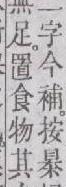 一字今補。按暴
足。置食物其